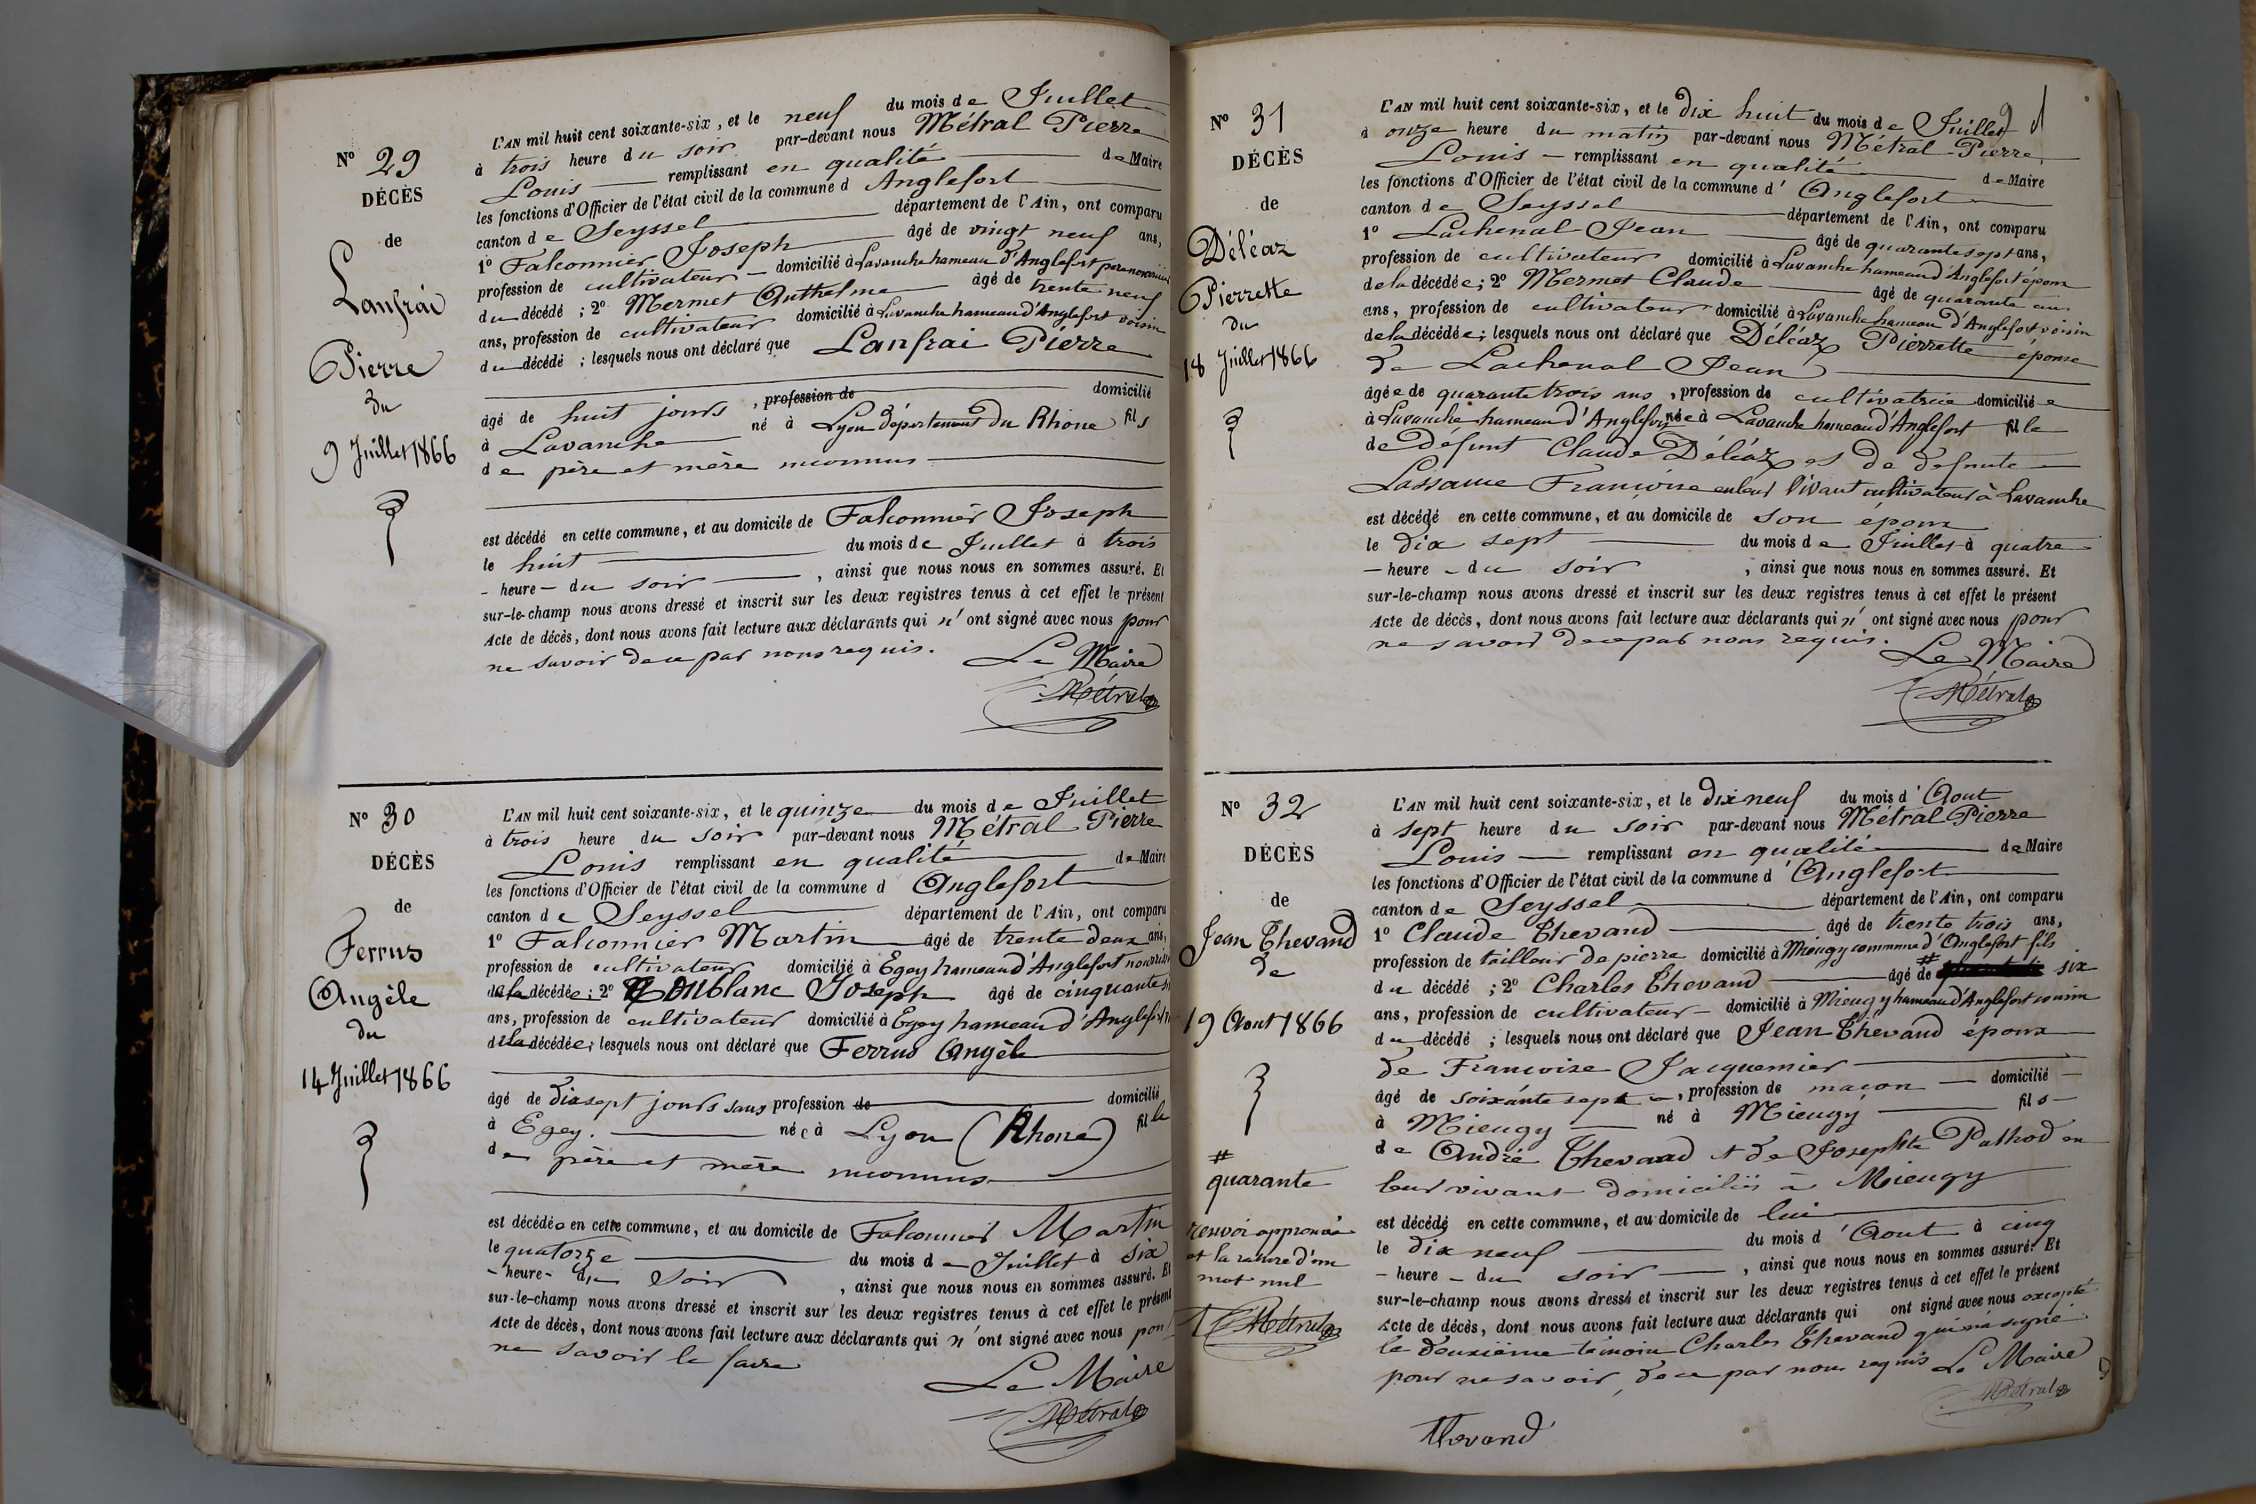 N° 29
DÉCÈS
de
Lanfrai
Pierre
du
9 Juillet 1866
L'AN mil huit cent soixante-six, et le neuf du mois de Juillet
à trois heure du soir par-devant nous Métral Pierre
Louis remplissant en qualité de Maire
les fonctions d'Officier de l'état civil de la commune d Anglefort
canton de Seyssel département de l'Ain, ont comparu
1° Falconnier Joseph âgé de vingt neuf ans,
profession de cultivateur domicilié à Lavanche hameau d'Anglefort père nourricier
du décédé ; 2° Mermet Anthelme âgé de trente neuf
ans, profession de cultivateur domicilié à Lavanche hameau d'Anglefort voisin
du décédé ; lesquels nous ont déclaré que Lanfrai Pierre
âgé de huit jours , profession de domicilié
à Lavanche né à Lyon département du Rhône fils
de père et mère inconnus
est décédé en cette commune, et au domicile de Falconnier Joseph
le huit du mois de Juillet à trois
heure du soir , ainsi que nous nous en sommes assuré. Et
sur-le-champ nous avons dressé et inscrit sur les deux registres tenus à cet effet le présent
Acte de décès, dont nous avons fait lecture aux déclarants qui n'ont signé avec nous pour
ne savoir de ce par nous requis. Le Maire
Métral
N° 30
DÉCÈS
de
Ferrus
Angèle
du
14 Juillet 1866
L'AN mil huit cent soixante-six, et le quinze du mois de Juillet
à trois heure du soir par-devant nous Métral Pierre
Louis remplissant en qualité de Maire
les fonctions d'Officier de l'état civil de la commune d Anglefort
canton de Seyssel département de l'Ain, ont comparu
1° Falconnier Martin âgé de trente deux ans,
profession de cultivateur domicilié à Egey hameau d'Anglefort
de la décédée ; 2° Joseph âgé de cinquante
ans, profession de cultivateur domicilié à Egey hameau d'Anglefort
de la décédée ; lesquels nous ont déclaré que Ferrus Angèle
âgé de dix sept jours sans profession de domicilié
à Egey. née à Lyon (Rhône) fille
de père et mère inconnus
est décédée en cette commune, et au domicile de Falconnier Martin
le quatorze du mois de Juillet à six
heure du soir , ainsi que nous nous en sommes assuré. Et
sur-le-champ nous avons dressé et inscrit sur les deux registres tenus à cet effet le présent
Acte de décès, dont nous avons fait lecture aux déclarants qui n'ont signé avec nous pour
ne savoir le faire
Le Maire
Métral
N° 31
DÉCÈS
de
Déléaz
Pierrette
du
18 Juillet 1866
L'AN mil huit cent soixante-six, et le dix huit du mois de Juillet
à onze heure du matin par-devant nous Métral Pierre
Louis remplissant en qualité de Maire
les fonctions d'Officier de l'état civil de la commune d' Anglefort
canton de Seyssel département de l'Ain, ont comparu
1° Lachenal Jean âgé de quarante sept ans,
profession de cultivateur domicilié à Lavanche hameau d'Anglefort époux
de la décédée ; 2° Mermet Claude âgé de quarante cinq
ans, profession de cultivateur domicilié à Lavanche hameau d'Anglefort voisin
de la décédée ; lesquels nous ont déclaré que Déléaz Pierrette épouse
de Lachenal Jean
âgée de quarante trois ans , profession de cultivatrice domiciliée
à Lavanche hameau d'Anglefort née à Lavanche hameau d'Anglefort fille
de Défunt Claude Déléaz et de défunte
Lassaure Françoise en leur vivant cultivateur à Lavanche
est décédé en cette commune, et au domicile de son époux
le dix sept du mois de Juillet à quatre
heure du soir , ainsi que nous nous en sommes assuré. Et
sur-le-champ nous avons dressé et inscrit sur les deux registres tenus à cet effet le présent
Acte de décès, dont nous avons fait lecture aux déclarants qui n'ont signé avec nous pour
ne savoir de ce par nous requis. Le Maire
Métral
N° 32
DÉCÈS
de
Jean Thevand
de
19 Aout 1866
#
quarante
renvoi approuvé
et la rature d'un
mot nul
Métral
L'AN mil huit cent soixante-six, et le dix neuf du mois d' Aout
à sept heure du soir par-devant nous Métral Pierre
Louis remplissant en qualité de Maire
les fonctions d'Officier de l'état civil de la commune d' Anglefort
canton de Seyssel département de l'Ain, ont comparu
1° Claude Thevand âgé de trente trois ans,
profession de tailleur de pierre domicilié à Mieugy commune d'Anglefort fils
du décédé ; 2° Charles Thevand âgé de # six
ans, profession de cultivateur domicilié à Mieugy hameau d'Anglefort cousin
du décédé ; lesquels nous ont déclaré que Jean Thevand époux
de Françoise Jacquemier
âgé de soixante sept , profession de maçon domicilié
à Mieugy né à Mieugy fils
de André Thevand et de Josephte Pathod en
leur vivant domiciliés à Mieugy
est décédé en cette commune, et au domicile de lui
le dix neuf du mois d' Aout à cinq
heure du soir , ainsi que nous nous en sommes assuré. Et
sur-le-champ nous avons dressé et inscrit sur les deux registres tenus à cet effet le présent
Acte de décès, dont nous avons fait lecture aux déclarants qui ont signé avec nous excepté
le deuxième témoin Charles Thevand qui n'a signé
pour ne savoir, de ce par nous requis Le Maire
Métral
Thevand